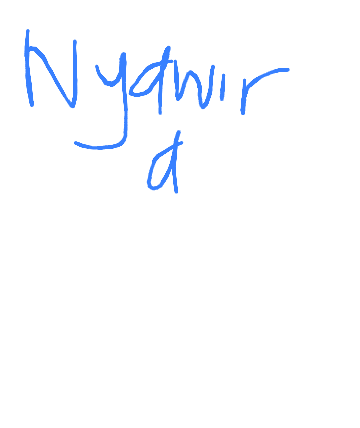 Nyawir
a